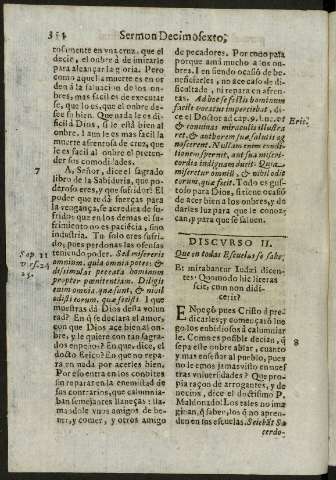 354 Sermon Decimosexto,
rosamente en vna cruz. que el
decir, el onbre à de imitarle
para alcançar la gloria. Pero
como aquella muerte es en or
den à la saluacion de los on-
bres, mas facil es de executar
se, que lo es, que el onbre de-
see su bien. Que nada le es di-
ficil à Dios, si le està bien al
onbre. I aun le es mas facil la
muerte afrentosa de cruz, que
le es facil al onbre el preten-
der sus comodidades.
7 A, Señor, dice el sagrado
libro de la Sabiduria, que po-
deroso eres, y que sufrido! El
poder que te dà fuerças para
la vengança, se acredita de su-
frido; que en los demas el su-
frimiento no es paciécia, sino
industria. Tu solo eres sufri-
do, pues perdonas las ofensas
teniendo poder. Sed misereris
Sap. 11
omnium, quia omnia potes; &
vers. 24
dissimulas peccata hominum
25.
propter pœnitentiam. Diligis
enim omnia quæ sunt, & nihil
odisti eorum, quæ fecisti. I que
muestras dà Dios desta volun
tad? En q̃ se declara el amor
con que Dios ace bien al on-
bre, y le quiere con tan sagra-
dos enpeño? En que, dice, el
docto Erico? En que no repa-
ra en nada por acerles bien.
Por eso entra en los conbites
sin reparar en la enemistad de
sus contrarios, que calumnia-
ban semejantes llaneças: lla-
mandole vnos amigos de be-
uer, y comer, y otros amigo
de pecadores. Por todo pasa
porque ama mucho a los on-
bres. I en siendo ocasió de be-
neficiarles, no ace caso de di-
ficultade, ni repara en afren-
tas. Ad hoc se festis hominum
facile vocatus impertiebat, di-
ce el Doctor ad cap. 9. Luc. vt
Eric.
& conuiuas miraculis illustra
ret, & authorem suæ salutis ag
noscerent. Nullam enim condi-
tionem spernit, aut sua miseri-
cordia indignam ducit. Quia
miseretur omniũ, & nihil odit
eorum, quæ fecit. Todo es gus-
toso para Dios, si tiene ocasió
de acer bien a los onbres, y de
darles luz para que le conoz-
can, y para que se saluen.
DISCVRSO II.
Que en todas Escuelas se sabe,
Et mirabantur Iudæi dicen-
tes: Quomodo hic literas
scit, cum non didi-
cerit?
8 Enpeçò pues Cristo à pre
dicarles; y comenzaró lue
go los enbidiosos à calumniar
le. Como es posible decian, q̃
sepa este onbre ablar, cuanto
y mas enseñar al pueblo, pues
no le emos jamas visto en nues
tras vniuersidades? Que pro-
pia raçon de arrogantes, y de
necios, dice el doctisimo P.
Maldonado! Los tales no ima
ginan, q̃ saber, los q̃ no apren-
den en sus escuelas. Sciebãt Sa
cerdo-